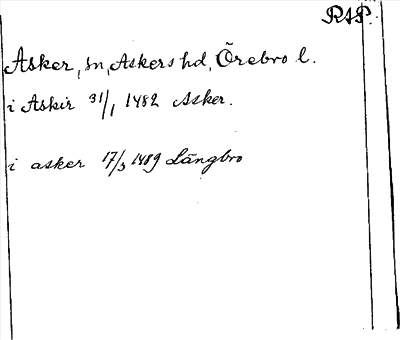 RAP.
Asker, sn, Askers hd, Örebro l.
i Askir 31/1 1482 Asker.
i asker 17/3 1489 Längbro